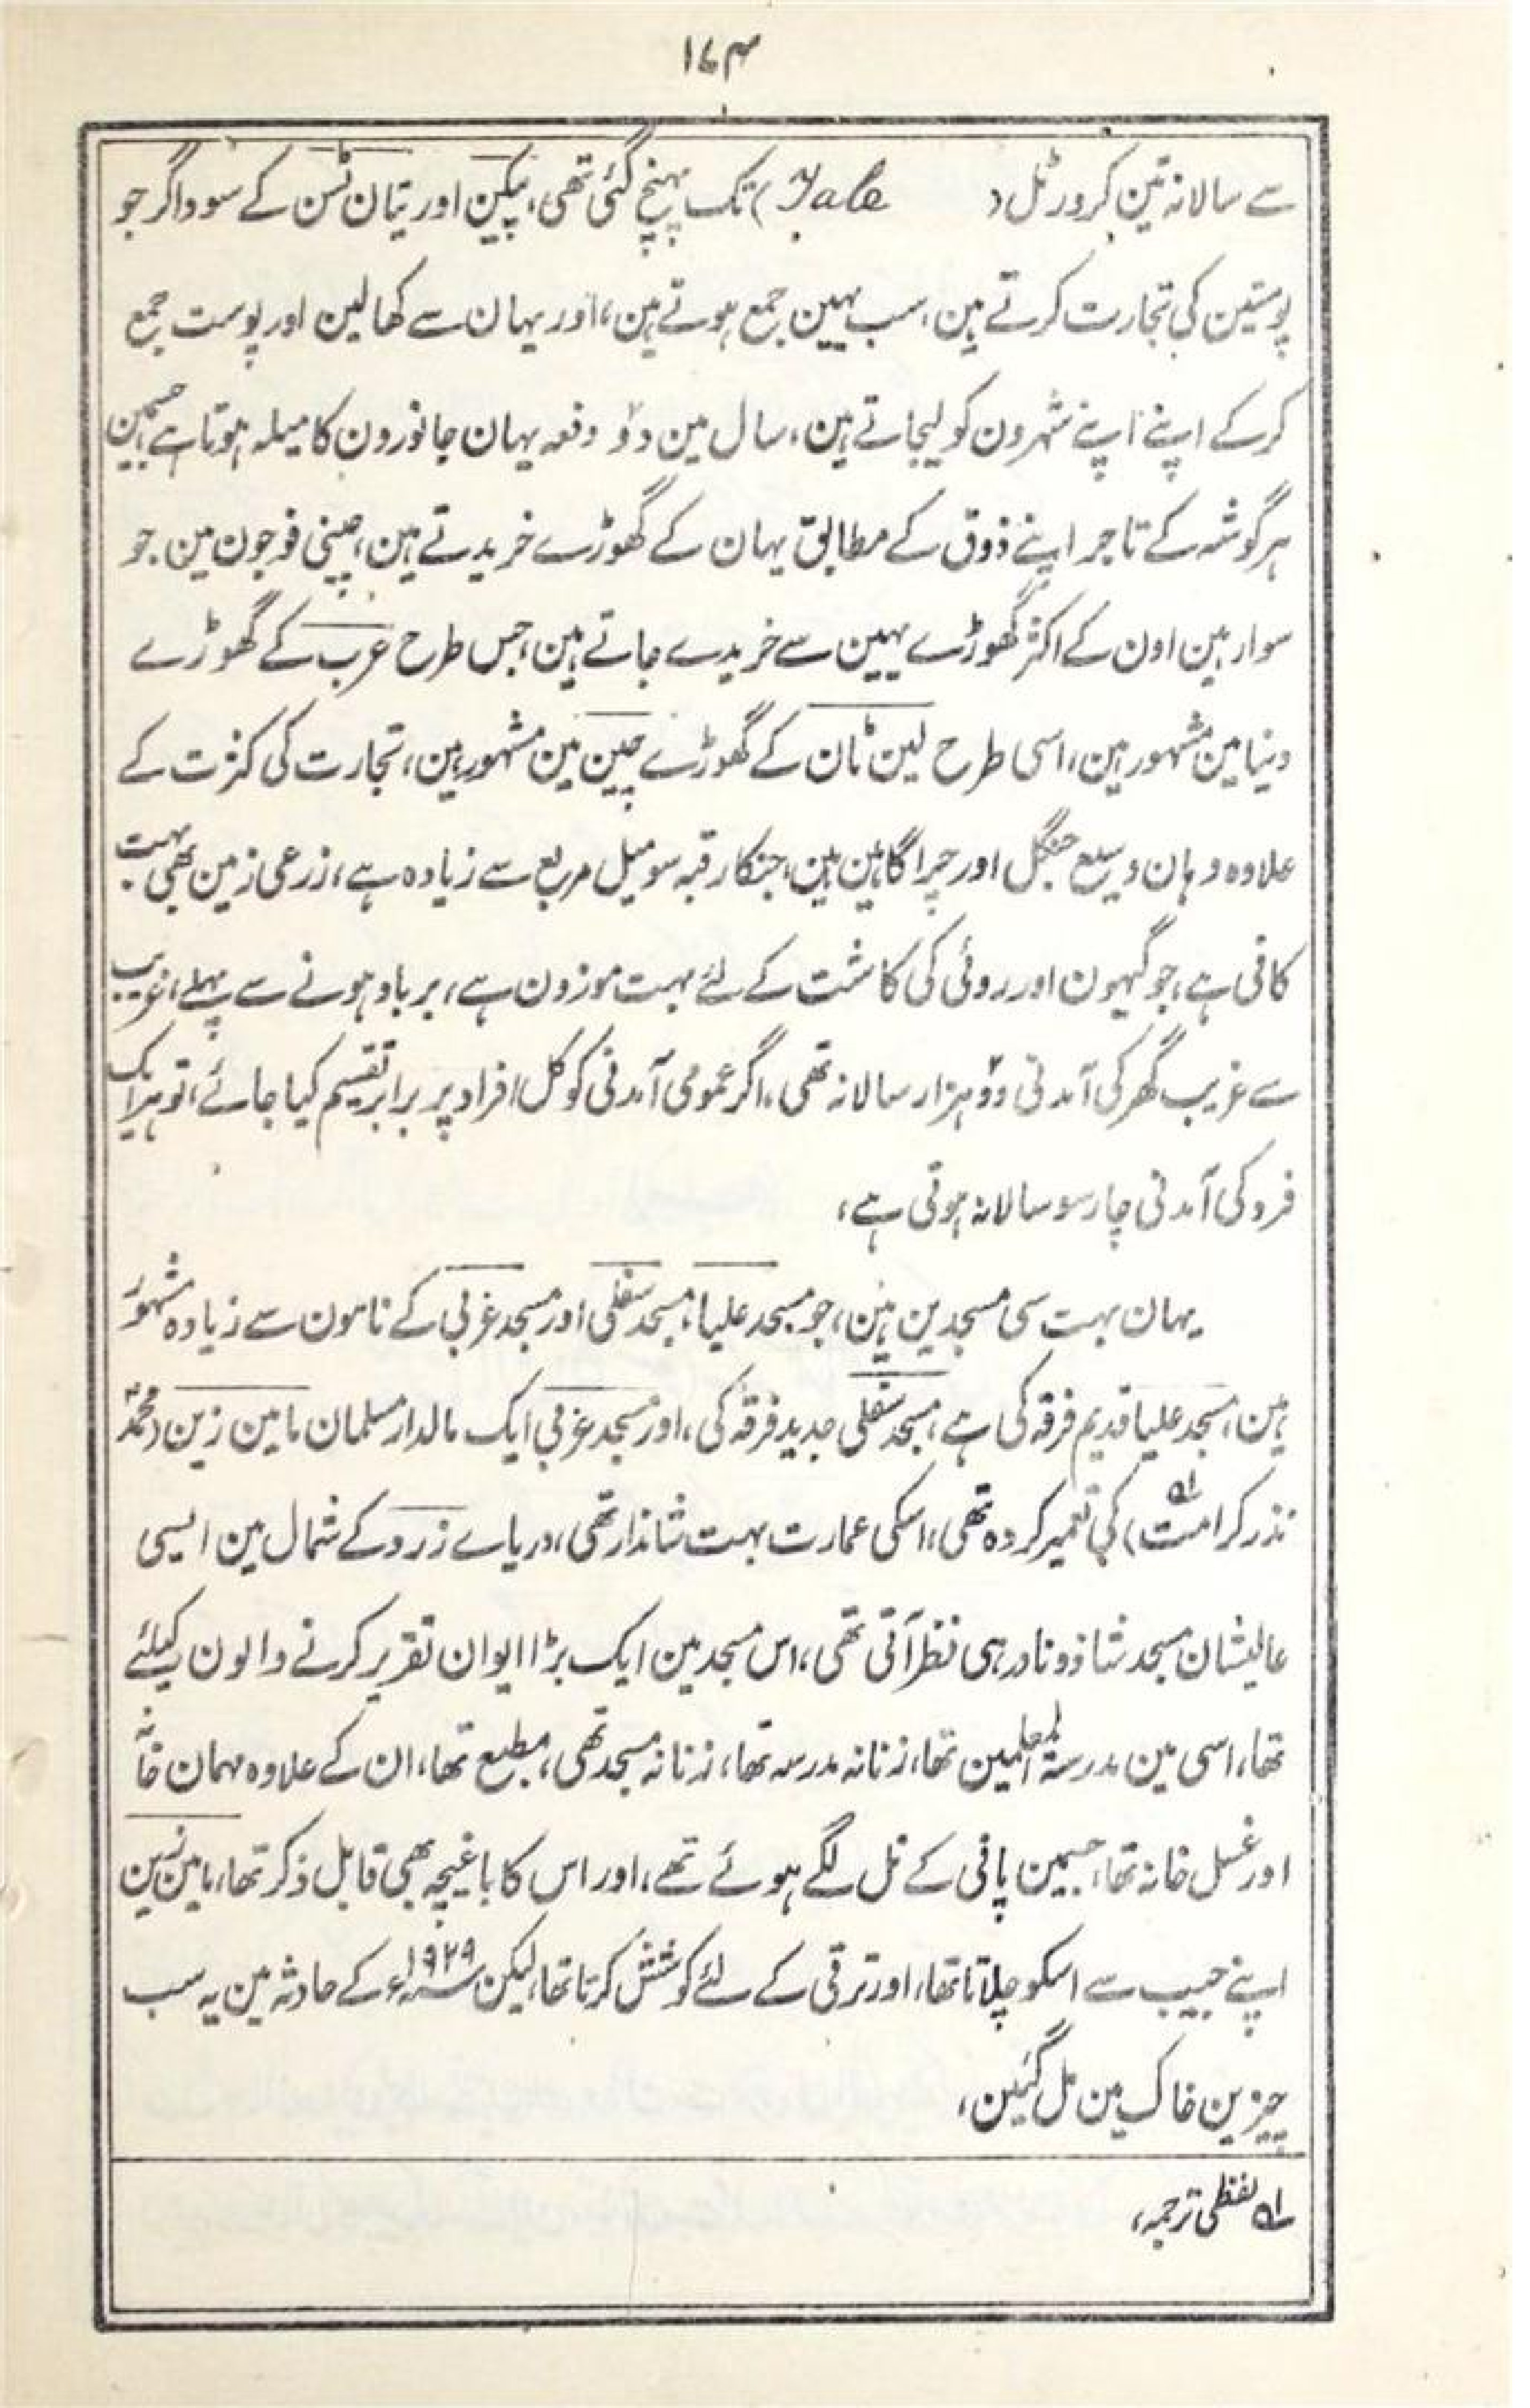 ۱۷۴
سے سالانہ تین کرور ٹل (Tale) تک پہنچ گئی تھی، پیکین اور تیان ٹسن کے سوداگر جو
پوستین کی تجارت کرتے ہین، سب یہین جمع ہوتے ہین، اور یہان سے کھالین اور پوست جمع
کرکے اپنے اپنے شہرون کو لیجاتے ہین، سال مین دو دفعہ یہان جانورون کا میلہ ہوتا ہے جسمین
ہر گوشہ کے تاجر اپنے ذوق کے مطابق یہان کے گھوڑے خریدتے ہین، چینی فوجون مین جو
سوار ہین اون کے اکثر گھوڑے یہین سے خریدے جاتے ہین، جس طرح عرب کے گھوڑے
دنیا مین مشہور ہین، اسی طرح لین ٹان کے گھوڑے چین مین مشہور ہین، تجارت کی کثرت کے
علاوہ وہان وسیع جنگل اور چراگاہین ہین، جنکا رقبہ سو میل مربع سے زیادہ ہے، زرعی زمین بھی بہت
کافی ہے، جو گیہون اور روئی کی کاشت کے لئے بہت موزون ہے، برباد ہونے سے پہلے، غریب
سے غریب گھر کی آمدنی دو ہزار سالانہ تھی، اگر عمومی آمدنی کو کل افراد پر برابر تقسیم کیا جائے، تو ہر ایک
فرد کی آمدنی چار سو سالانہ ہوتی ہے،
یہان بہت سی مسجدین ہین، جو مسجد علیا، مسجد سفلی اور مسجد غربی کے نامون سے زیادہ مشہور
ہین، مسجد علیا قدیم فرقہ کی ہے، مسجد سفلی جدید فرقہ کی، اور مسجد غربی ایک مالدار مسلمان ماین زین (محمد
نذر کرامت) ؎۱ کی تعمیر کردہ تھی، اسکی عمارت بہت شاندار تھی، دریاے زرد کے شمال مین ایسی
عالیشان مسجد شاذ و نادر ہی نظر آتی تھی، اس مسجد مین ایک بڑا ایوان تقریر کرنے والون کیلئے
تھا، اسی مین مدرسۃ المعلمین تھا، زنانہ مدرسہ تھا، زنانہ مسجد تھی، مطبع تھا، ان کے علاوہ مہمان خانہ
اور غسل خانہ تھا، جسمین پانی کے نل لگے ہوئے تھے، اور اس کا باغیچہ بھی قابل ذکر تھا، ماین زین
اپنے جیب سے اسکو چلاتا تھا، اور ترقی کے لئے کوشش کرتا تھا، لیکن ۱۹۲۹ء کے حادثہ مین یہ سب
چیزین خاک مین مل گئین،
؎۱ لفظی ترجمہ،